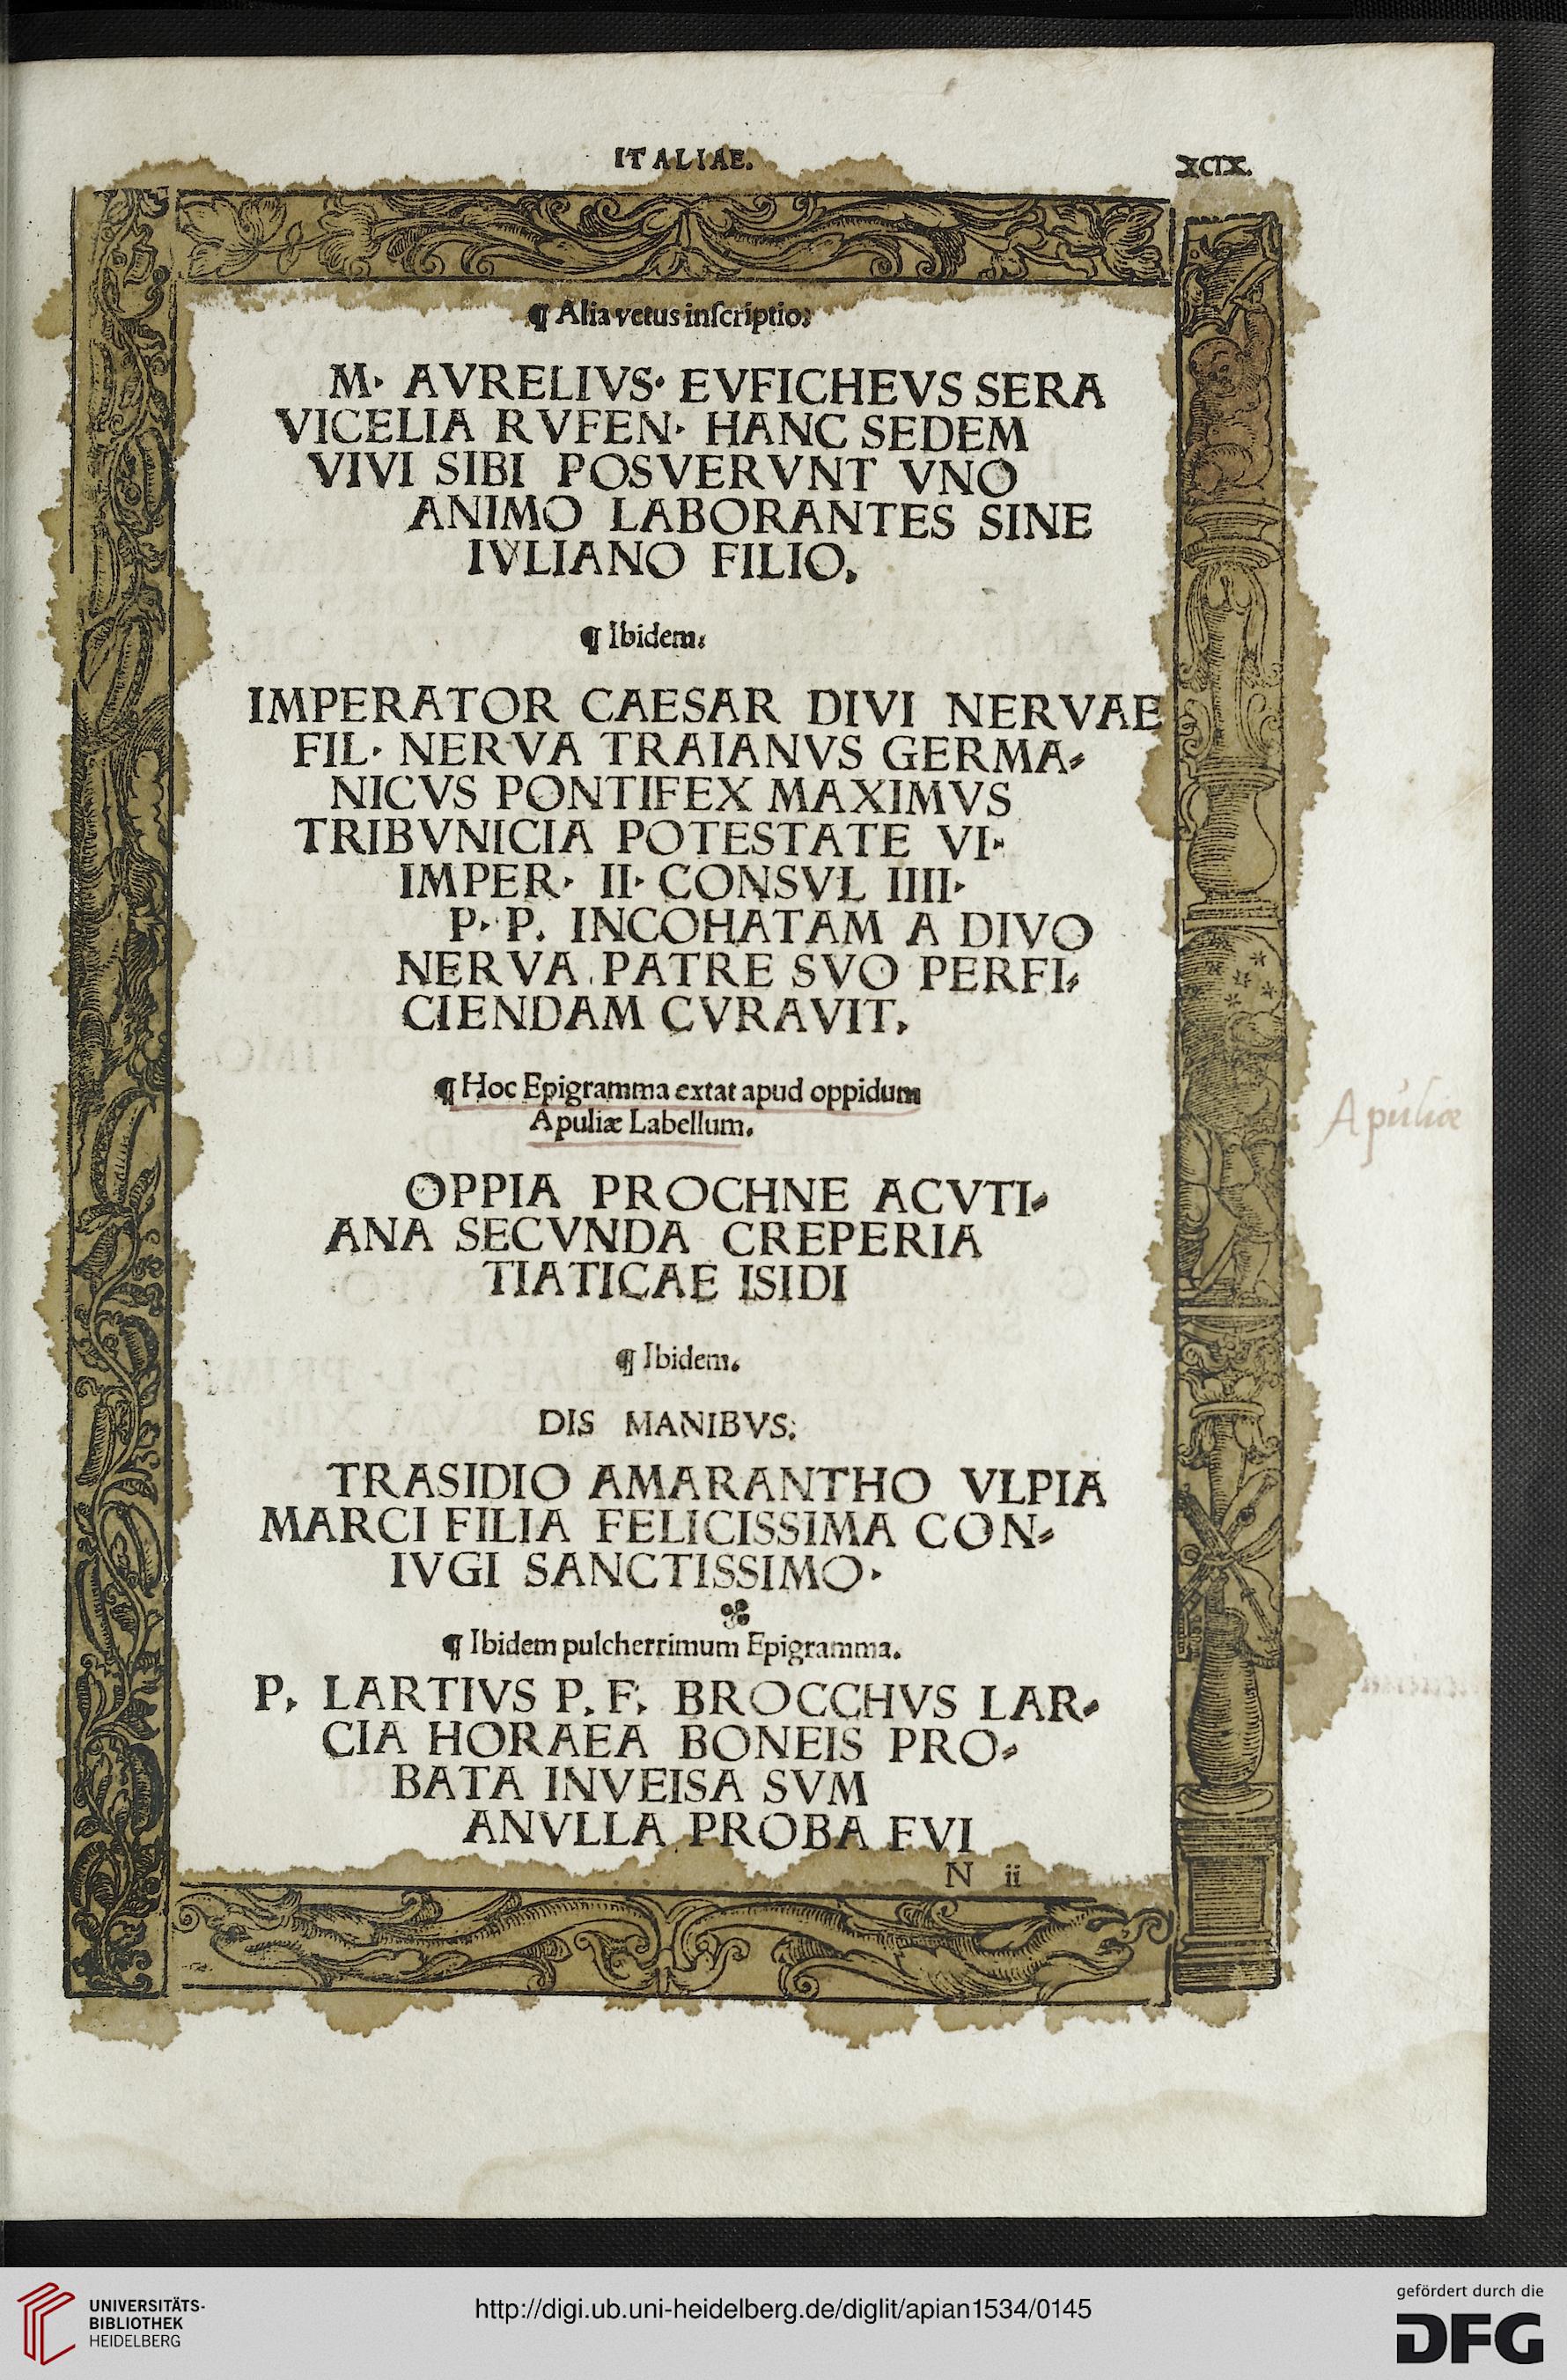 ITALIAE.
XCIX.
¶ Alia vetus inſcriptio:
M· AVRELIVS· EVFICHEVS SERA
VICELIA RVFEN· HANC SEDEM
VIVI SIBI POSVERVNT VNO
ANIMO LABORANTES SINE
IVLIANO FILIO.
¶ Ibidem:
IMPERATOR CAESAR DIVI NERVAE
FIL· NERVA TRAIANVS GERMA⸗
NICVS PONTIFEX MAXIMVS
TRIBVNICIA POTESTATE VI·
IMPER· II· CONSVL IIII·
P· P. INCOHATAM A DIVO
NERVA PATRE SVO PERFI⸗
CIENDAM CVRAVIT.
¶ Hoc Epigramma extat apud oppidum
Apuliæ Labellum.
Apuliæ
OPPIA PROCHNE ACVTI⸗
ANA SECVNDA CREPERIA
TIATICAE ISIDI
¶ Ibidem.
DIS MANIBVS:
TRASIDIO AMARANTHO VLPIA
MARCI FILIA FELICISSIMA CON⸗
IVGI SANCTISSIMO·
¶ Ibidem pulcherrimum Epigramma.
P. LARTIVS P. F. BROCCHVS LAR⸗
CIA HORAEA BONEIS PRO⸗
BATA INVEISA SVM
ANVLLA PROBA FVI
N ii
UNIVERSITÄTS-
BIBLIOTHEK
HEIDELBERG
http://digi.ub.uni-heidelberg.de/diglit/apian1534/0145
gefördert durch die
DFG